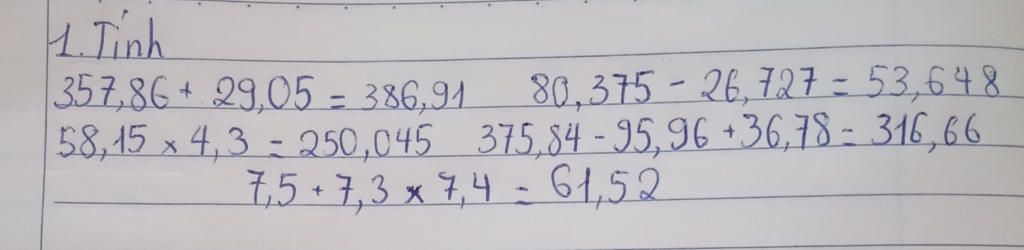 1. Tính
357,86 + 29,05 = 386,91 80,375 - 26,727 = 53,648
58,15 × 4,3 = 250,045 375,84 - 95,96 + 36,78 = 316,66
7,5 + 7,3 × 7,4 = 61,52